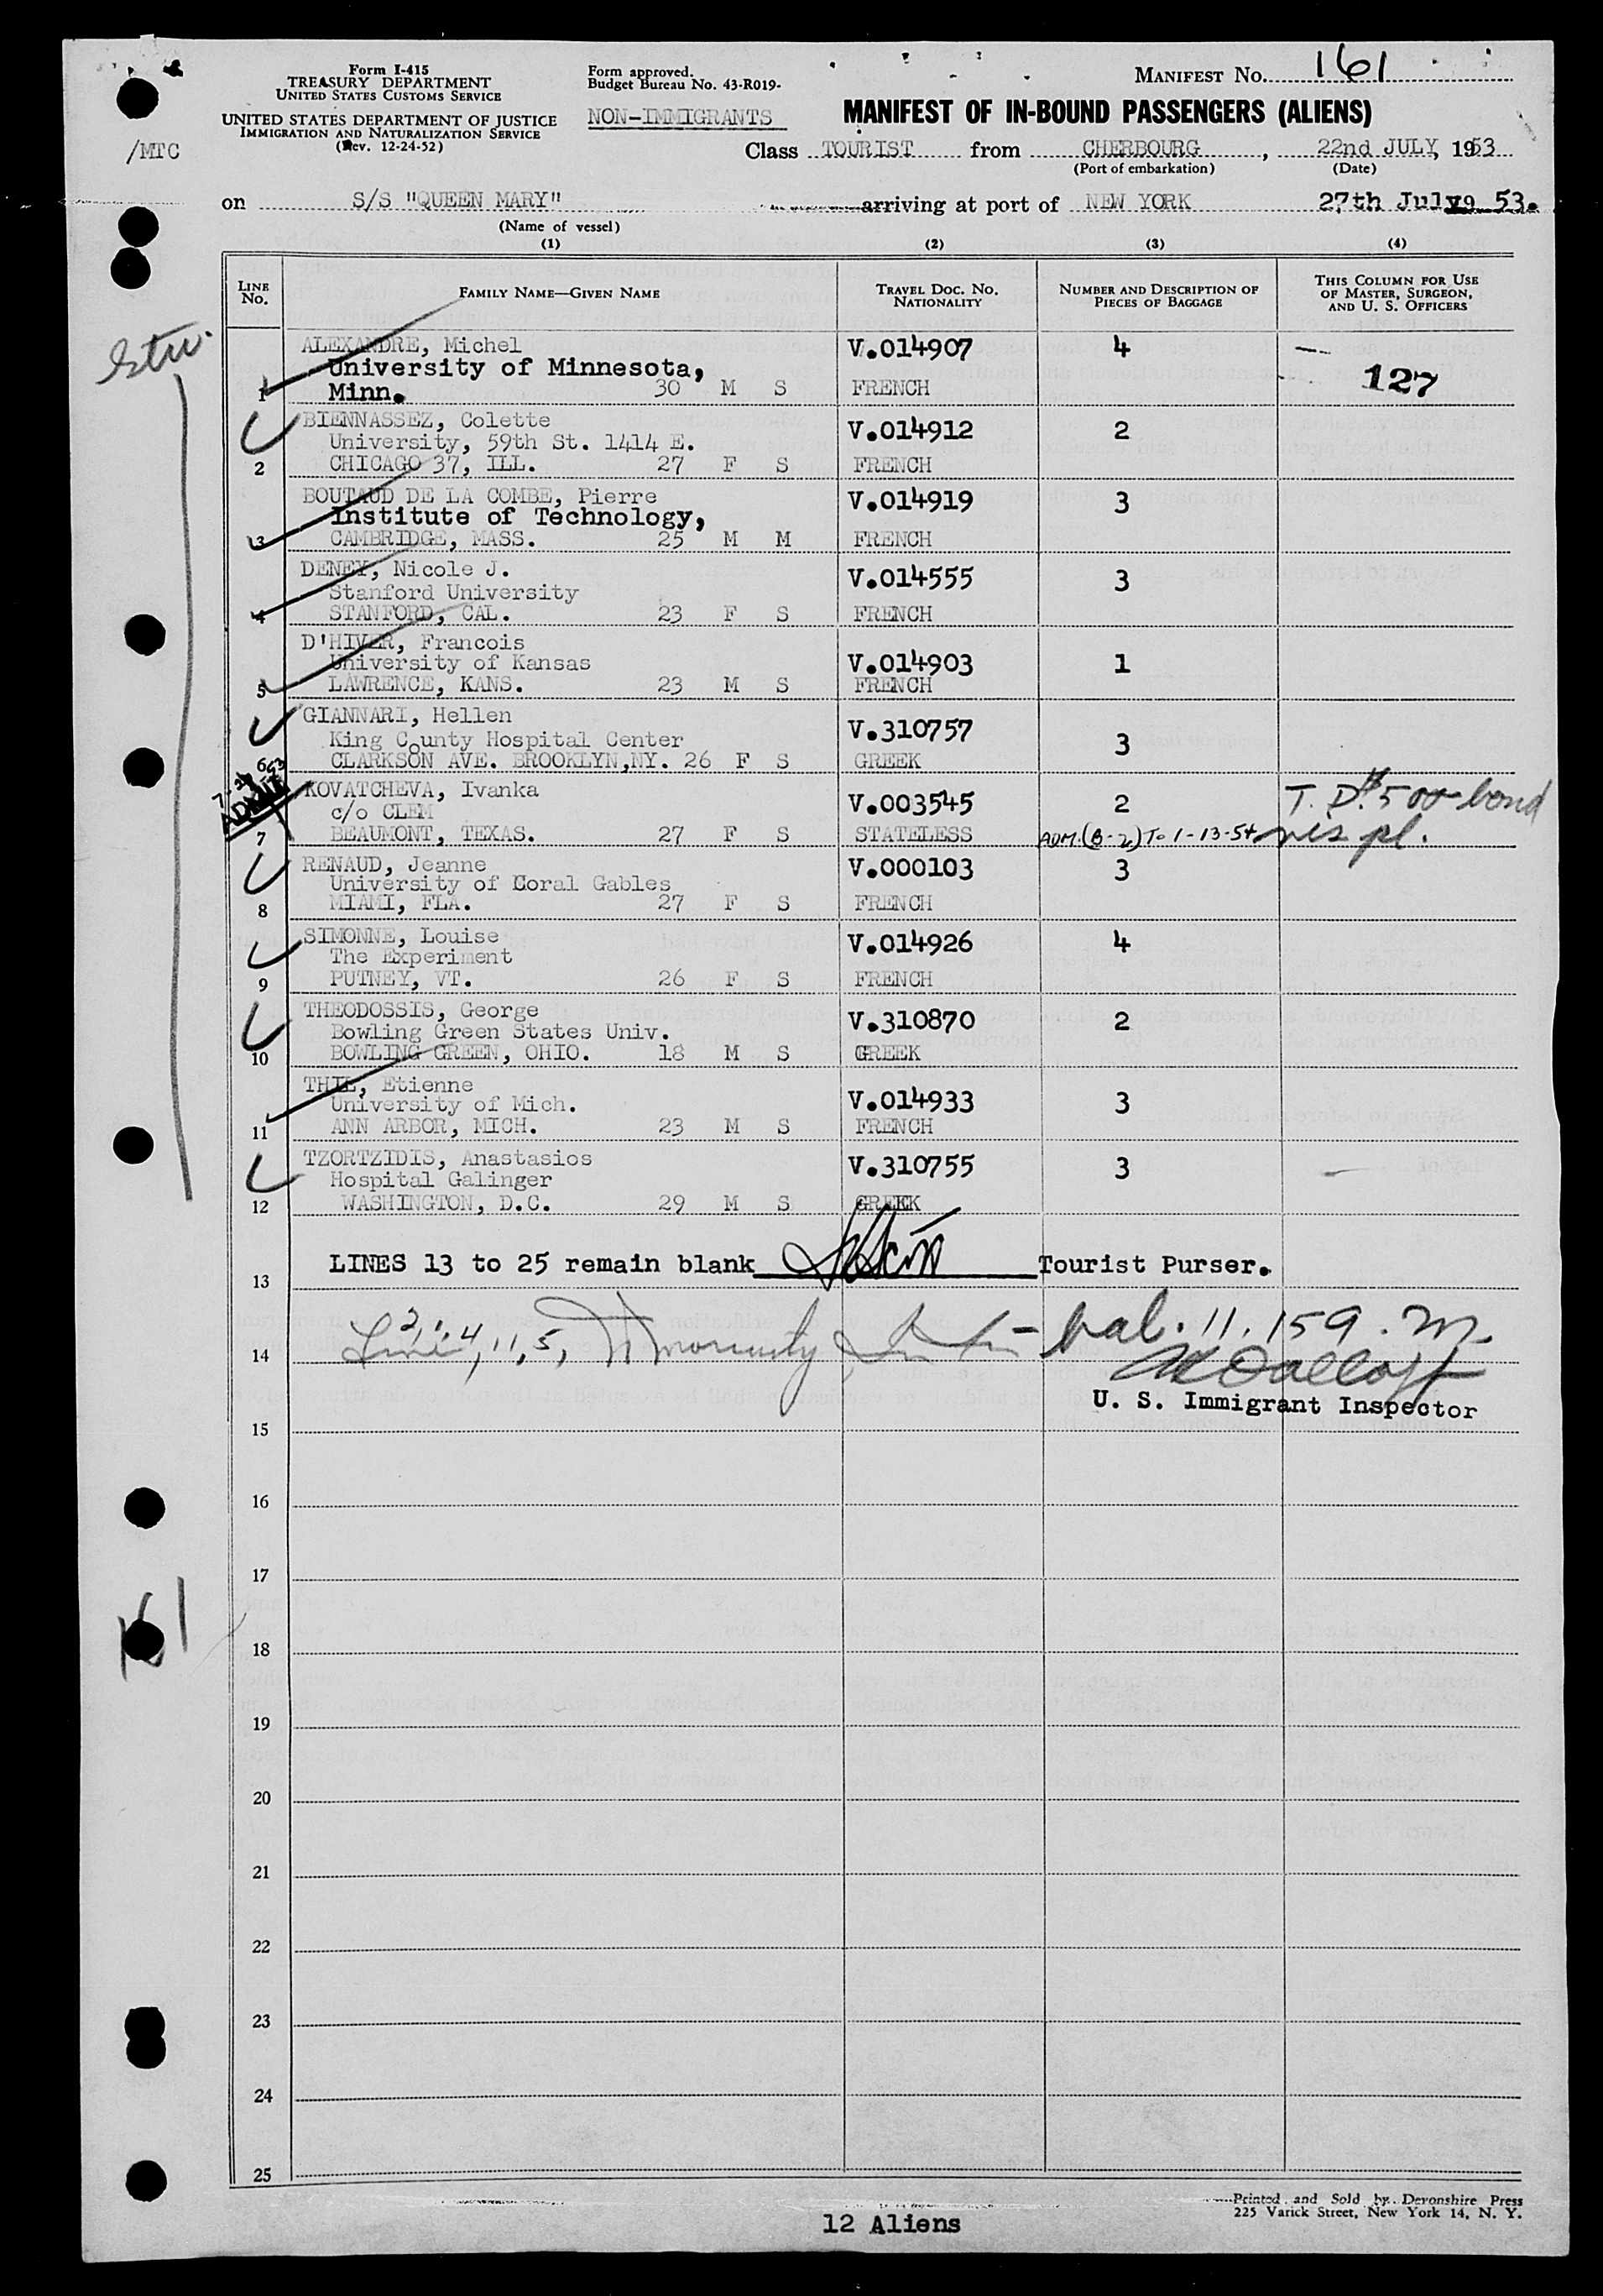 Form I-415
TREASURY DEPARTMENT
UNITED STATES CUSTOMS SERVICE
UNITED STATES DEPARTMENT OF JUSTICE
IMMIGRATION AND NATURALIZATION SERVICE
(Rev. 12-24-52)
/MTC
Form approved.
Budget Bureau No. 43-R019-
NON-IMMIGRANTS
MANIFEST No. 161
MANIFEST OF IN-BOUND PASSENGERS (ALIENS)
Class TOURIST from CHERBOURG, 22nd JULY, 1953
(Port of embarkation) (Date)
on S/S "QUEEN MARY" arriving at port of NEW YORK 27th July 19 53.
(Name of vessel)
(1) (2) (3) (4)
LINE No. FAMILY NAME—GIVEN NAME TRAVEL DOC. No. NATIONALITY NUMBER AND DESCRIPTION OF PIECES OF BAGGAGE THIS COLUMN FOR USE OF MASTER, SURGEON, AND U. S. OFFICERS
ALEXANDRE, Michel V.014907 4
University of Minnesota,
1 Minn. 30 M S FRENCH 127
BIENNASSEZ, Colette V.014912 2
University, 59th St. 1414 E.
2 CHICAGO 37, ILL. 27 F S FRENCH
BOUTAUD DE LA COMBE, Pierre V.014919 3
Institute of Technology,
3 CAMBRIDGE, MASS. 25 M M FRENCH
DENEY, Nicole J. V.014555 3
Stanford University
4 STANFORD, CAL. 23 F S FRENCH
D'HIVER, Francois
University of Kansas V.014903 1
5 LAWRENCE, KANS. 23 M S FRENCH
GIANNARI, Hellen V.310757
King County Hospital Center 3
6 CLARKSON AVE. BROOKLYN,NY. 26 F S GREEK
KOVATCHEVA, Ivanka V.003545 2 T. D. $500 bond
c/o CLEM
7 BEAUMONT, TEXAS. 27 F S STATELESS ADM.(B-2) To 1-13-54 vis pl.
RENAUD, Jeanne V.000103 3
University of Coral Gables
8 MIAMI, FLA. 27 F S FRENCH
SIMONNE, Louise V.014926 4
The Experiment
9 PUTNEY, VT. 26 F S FRENCH
THEODOSSIS, George V.310870 2
Bowling Green States Univ.
10 BOWLING GREEN, OHIO. 18 M S GREEK
THIL, Etienne
University of Mich. V.014933 3
11 ANN ARBOR, MICH. 23 M S FRENCH
TZORTZIDIS, Anastasios V.310755 3
Hospital Galinger
12 WASHINGTON, D.C. 29 M S GREEK
13 LINES 13 to 25 remain blank Tourist Purser.
14 Line 2, 1, 4, 11, 5, - bal. 11.159. m.
U. S. Immigrant Inspector
15
16
17
161
18
19
20
21
22
23
24
25
Printed and Sold by Devonshire Press
225 Varick Street, New York 14, N. Y.
12 Aliens